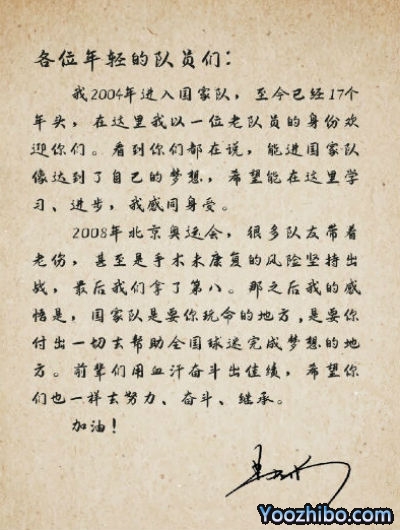 各位年轻的队员们：
我2004年进入国家队，至今已经17个
年头，在这里我以一位老队员的身份欢
迎你们。看到你们都在说，能进国家队
像达到了自己的梦想，希望能在这里学
习、进步，我感同身受。
2008年北京奥运会，很多队友带着
老伤，甚至是手术未康复的风险坚持出
战，最后我们拿了第八。那之后我的感
悟是，国家队是要你玩命的地方，是要你
付出一切去帮助全国球迷完成梦想的地
方。前辈们用血汗奋斗出佳绩，希望你
们也一样去努力、奋斗、继承。
加油！
Yoozhibo.com